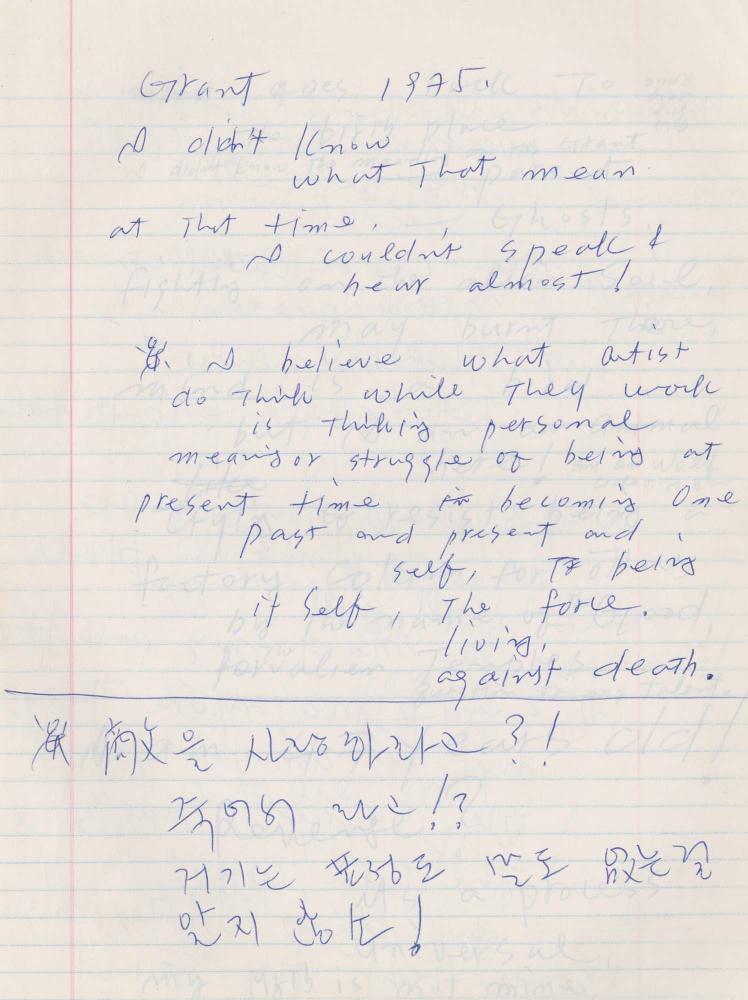 Grant 1975.
I didn't know
what That mean
at That time.
I couldn't speak &
hear almost!
I believe what artist
do Think while They work
is Thinking personal
meaning or struggle of being at
present time in becoming One
past and present and
self, being
it self, The force.
living,
against death.
敵을 사랑하라고?!
죽어서 라고!?
거기는 표정도 말도 없는걸
알지 않소!